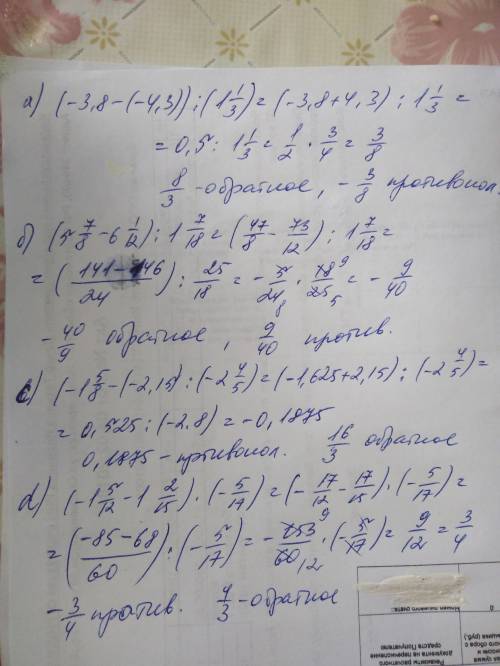 а) (-3,8-(-4,3)):(1 1/3)=(-3,8+4,3):1 1/3=
=0,5:1 1/3=1/2·3/4=3/8
8/3-обратное, -3/8 противопол.
б) (5 7/8-6 1/12):1 7/18=(47/8-73/12):1 7/18=
=(141-146/24):25/18=-5/24 8·18 9/25 5=-9/40
-40/9 обратное, 9/40 против.
с) (-1 5/8-(-2,15):(-2 4/5)=(-1,625+2,15):(-2 4/5)=
=0,525:(-2.8)=-0,1875
0,1875-противопол. 16/3 обратное
d) (-1 5/12-1 2/15)·(-5/17)=(-17/12-17/15)·(-5/17)=
=(-85-68/60):(-5/17)=-153 9/60 12·(-5/17)=9/12=3/4
-3/4 против. 4/3-обратное